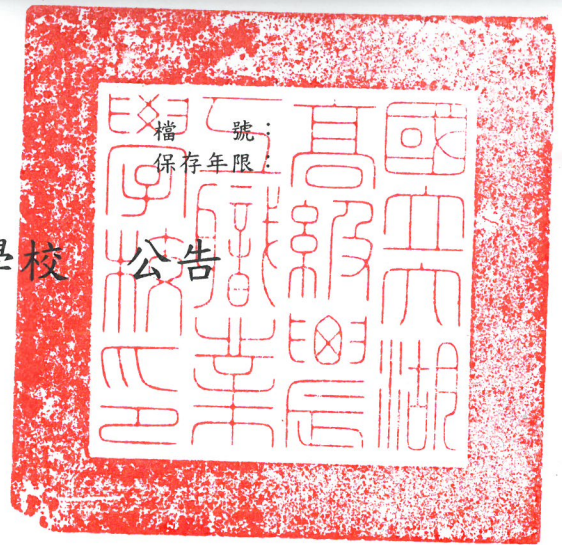 檔　　號：
保存年限：
學校　公告
國立大湖
高級農
工職業
學校印